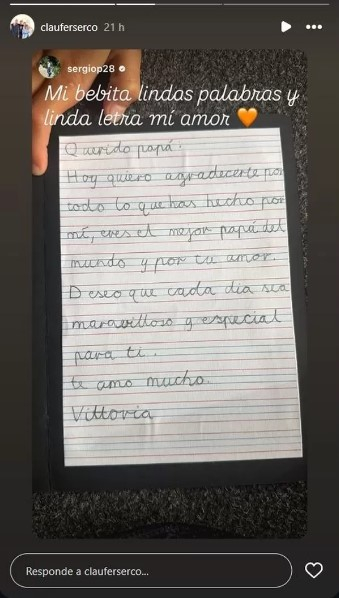 clauferserco 21 h
sergiop28
Mi bebita lindas palabras y
linda letra mi amor 🧡
Querido papá.
Hoy quiero agradecerte por
todo lo que has hecho por
mí, eres el mejor papá del
mundo y por tu amor.
Deseo que cada día sea
maravilloso y especial
para ti.
te amo mucho.
Vittoria
Responde a clauferserco...